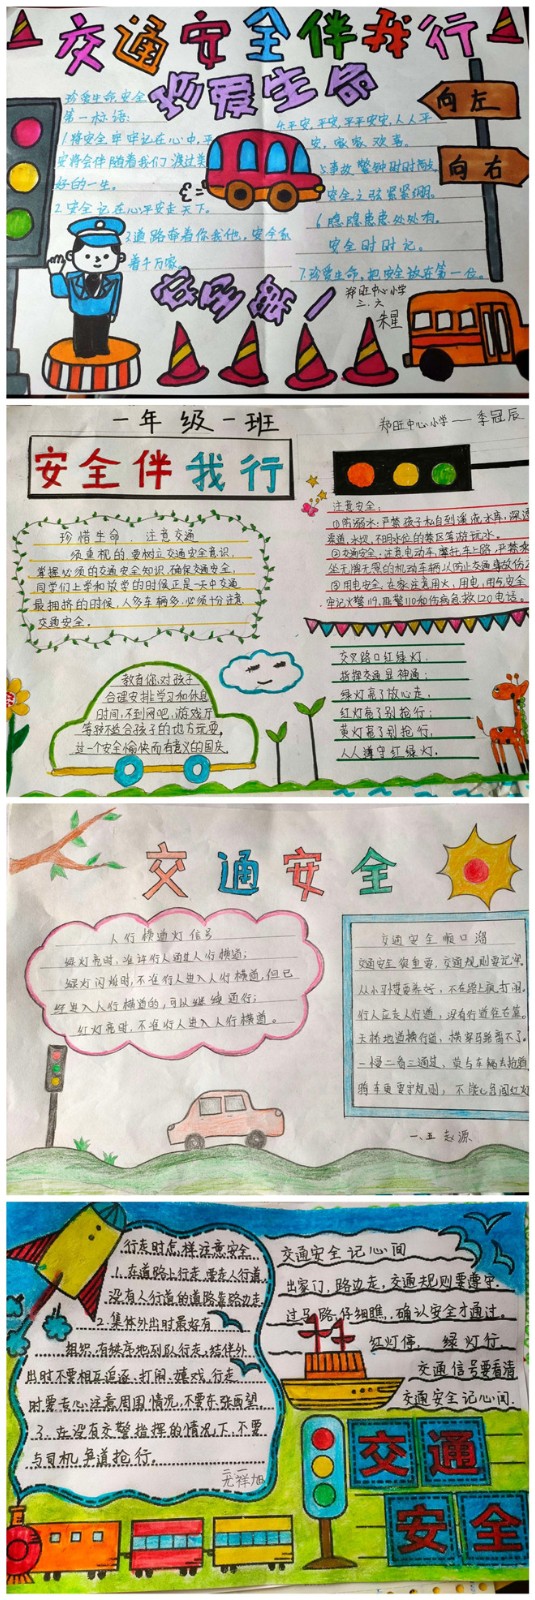 交通安全伴我行
珍爱生命
珍爱生命,安全
第一标语:
1.将安全牢牢记在心中,平
安将会伴随着我们渡过美
好的一生。
2.安全记在心平安走天下。
3.道路牵着你我他,安全系
着千万家。
4.平安,平安,平平安安,人人平
安,家家欢喜。
5.事故警钟时时敲
安全之弦紧紧绷。
6.隐隐患患处处有,
安全时时记。
7.珍爱生命,把安全放在第一位。
向左
向右
安全第一
郑旺中心小学
三.六
朱星
一年级一班
郑旺中心小学——季冠辰
安全伴我行
珍惜生命,注意交通
须重视的,要树立交通安全意识,
掌握必须的交通安全知识,确保交通安全。
同学们上学和放学的时候正是一天中交通
最拥挤的时候,人多车辆多,必须十分注意
交通安全。
注意安全:
①防溺水:严禁孩子私自到
②交通安全:注意电动车,摩托车上路,严禁
③用电安全,在家注意用火,用电,用气安全
牢记火警119,匪警110和伤病急救120电话。
教育你对孩子
合理安排学习和休息
时间,不到网吧,游戏厅
等不适合孩子的地方玩耍,
过一个安全愉快而有意义的国庆。
交叉路口红绿灯,
指挥交通显神通;
绿灯亮了放心走,
红灯亮了别抢行;
黄灯亮了别抢行,
人人遵守红绿灯。
交通安全
人行横道灯信号
绿灯亮时,准许行人通过人行横道;
绿灯闪烁时,不准行人进入人行横道,但已
经进入人行横道的,可以继续通行;
红灯亮时,不准行人进入人行横道。
交通安全顺口溜
交通安全很重要,交通规则要记牢,
从小养成好习惯,不在路上
行人应走人行道,没有行道往右靠。
天桥地道横行道,横穿马路离不了。
一慢二看三通过,莫与车辆去抢道
骑车更要守规则,不能心急闯红灯
一、五 赵源
行走时怎样注意安全
1.在道路上行走,要走人行道,
没有人行道的道路靠路边走.
2.集体外出时最好有
组织,有秩序地列队行走,结伴外
出时不要相互追逐、打闹、嬉戏,行走
时要专心,注意周围情况,不要东张西望,
3.在没有交警指挥的情况下,不要
与司机争道抢行.
交通安全记心间
出家门,路边走,交通规则要遵守.
过马路,仔细瞧,确认安全才通过.
红灯停,绿灯行.
交通信号要看清
交通安全记心间.
交通
安全